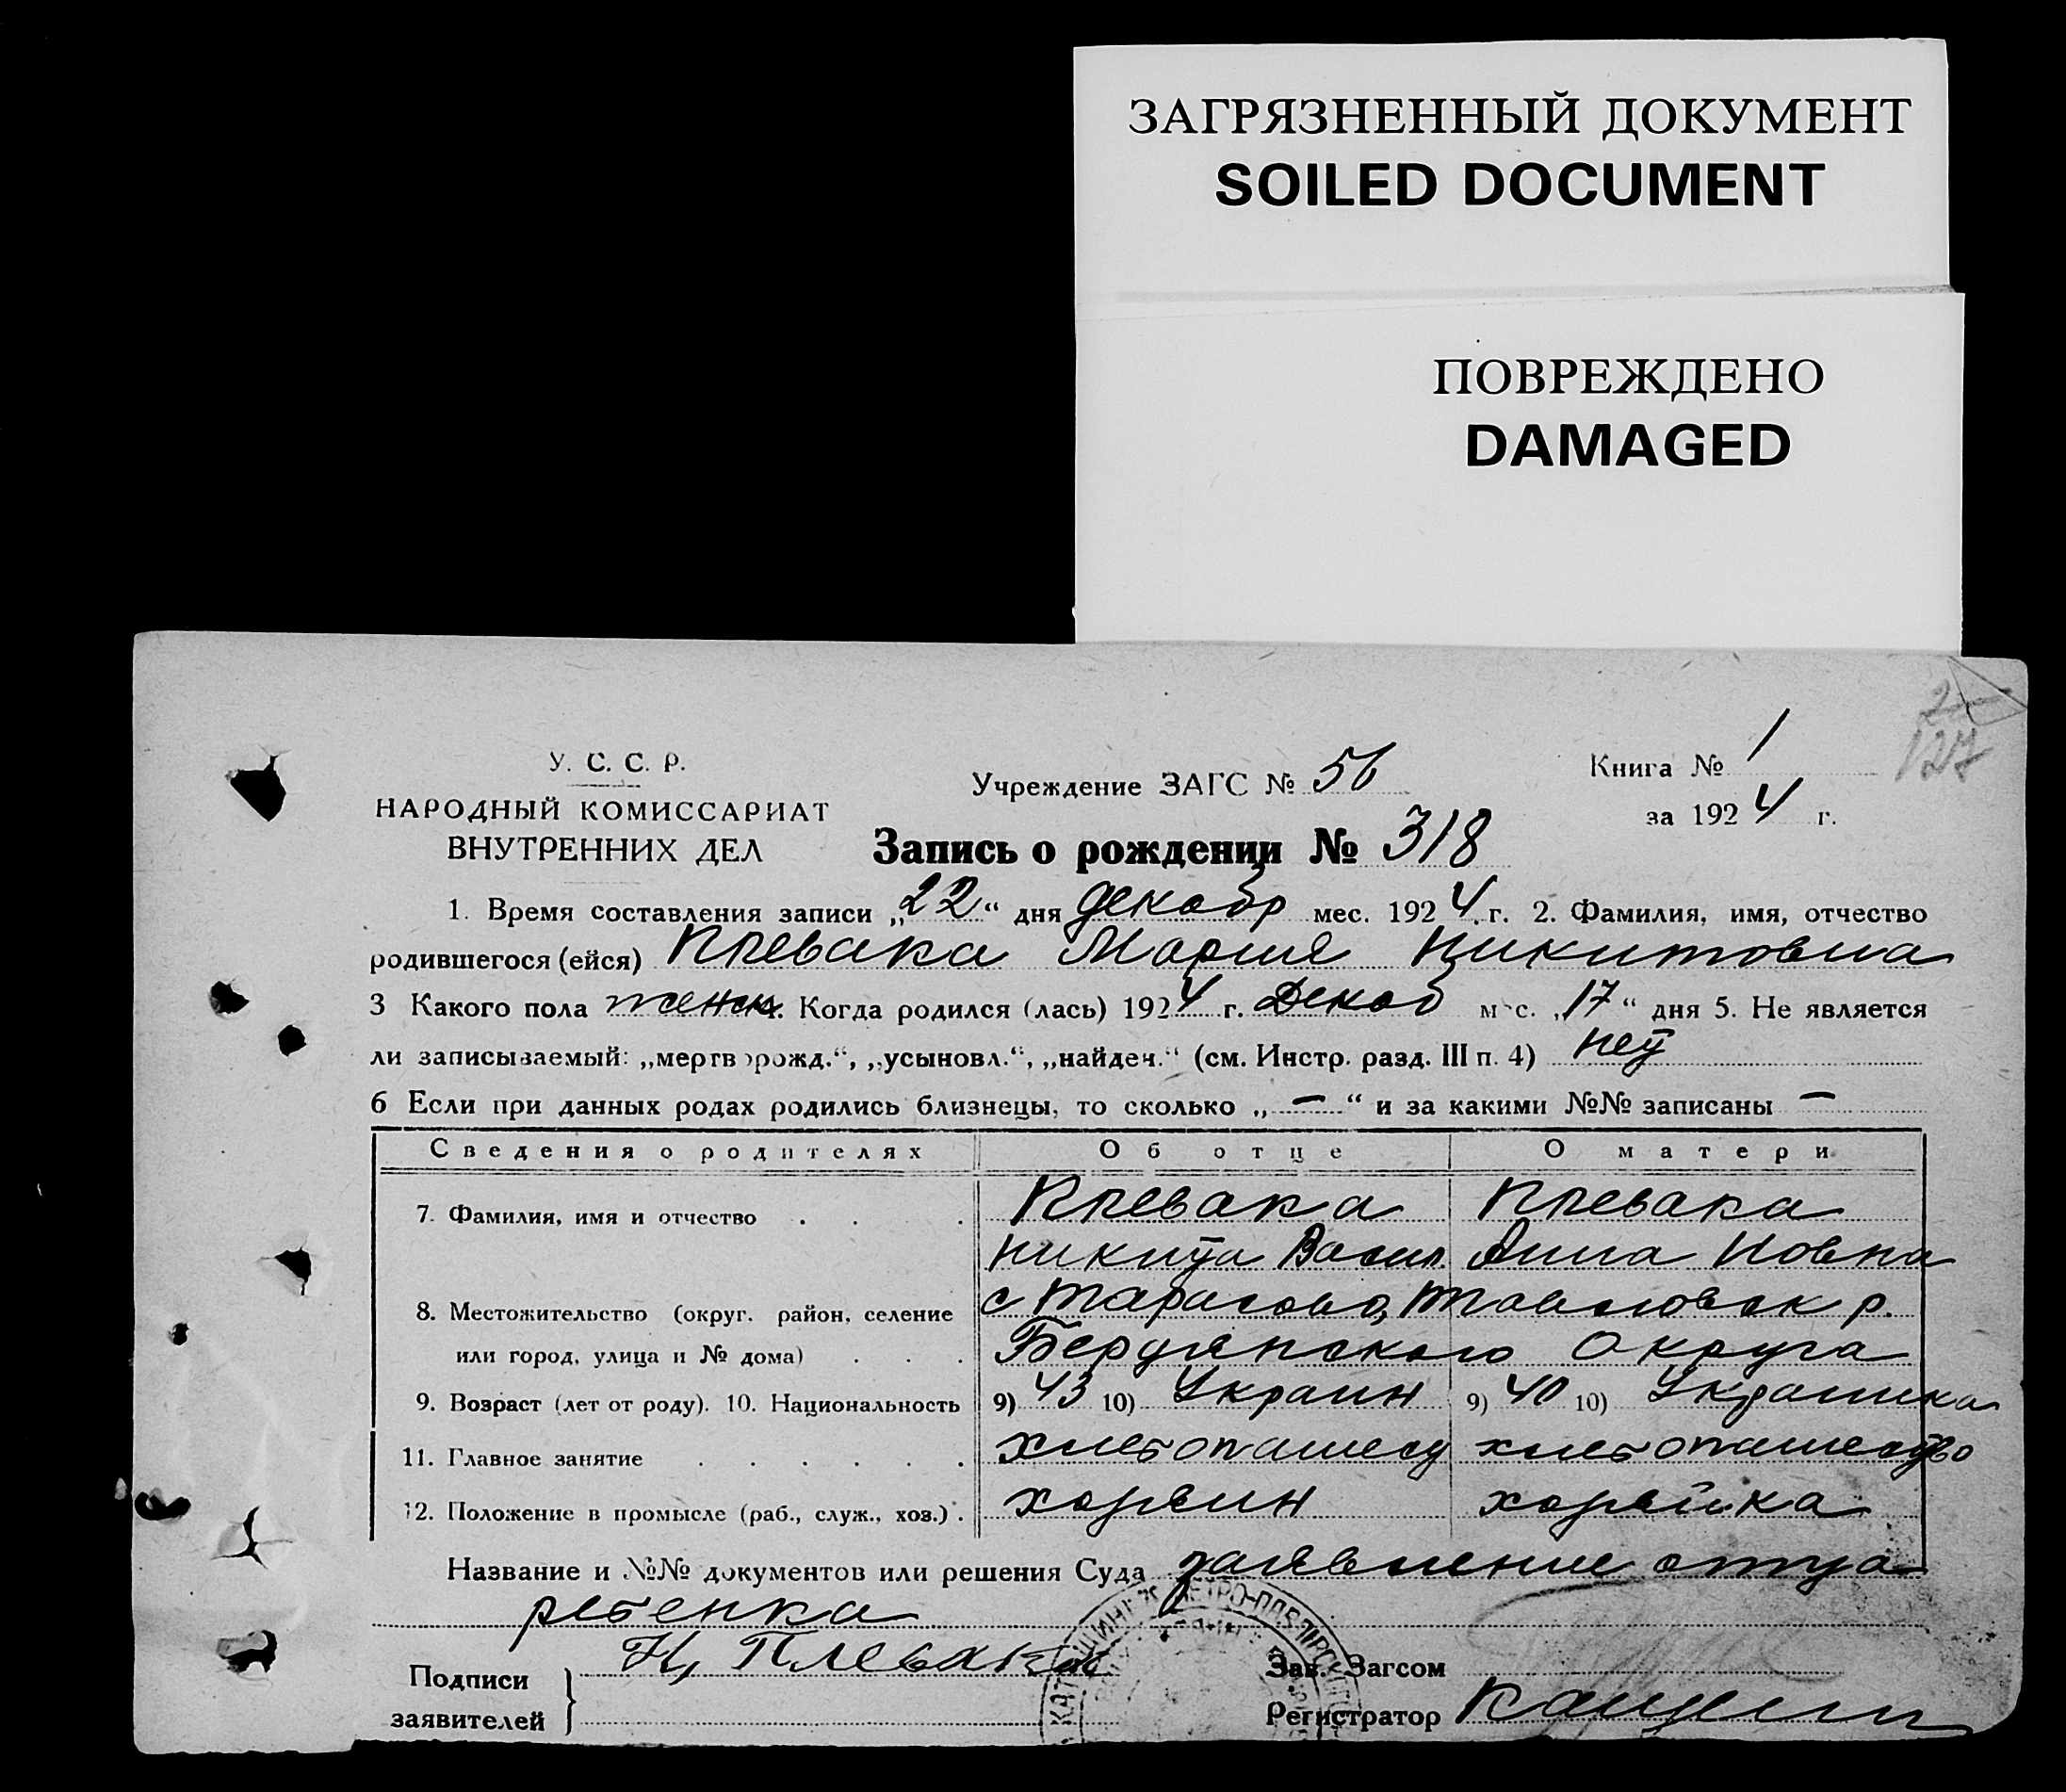 ЗАГРЯЗНЕННЫЙ ДОКУМЕНТ
SOILED DOCUMENT
ПОВРЕЖДЕНО
DAMAGED
127
У. С. С. Р.
НАРОДНЫЙ КОМИССАРИАТ
ВНУТРЕННИХ ДЕЛ
Учреждение ЗАГС № 56
Книга № 1
за 1924 г.
Запись о рождении № 318
1. Время составления записи „22“ дня декабр мес. 1924 г. 2. Фамилия, имя, отчество
родившегося (ейся) Плевака Мария Никитовна
3 Какого пола женск 4. Когда родился (лась) 1924 г. Декаб мес. „17“ дня 5. Не является
ли записываемый: „мертворожд.“, „усыновл.“, „найден.“ (см. Инстр. разд. III п. 4) нет
6 Если при данных родах родились близнецы, то сколько „—“ и за какими №№ записаны —
Сведения о родителях Об отце О матери
7. Фамилия, имя и отчество Плевака Плевака
Никита Васил. Анна Иовна
8. Местожительство (округ. район, селение с Тарасово, р.
или город, улица и № дома) Бердянского Округа
9. Возраст (лет от роду). 10. Национальность 9) 43 10) Украин 9) 40 10) Украинка
11. Главное занятие хлебопашест хлебопашество
12. Положение в промысле (раб., служ., хоз.) хозяин хозяйка
Название и №№ документов или решения Суда заявление отца
ребенка
Подписи
заявителей
Н. Плевака
Зав. Загсом
Регистратор